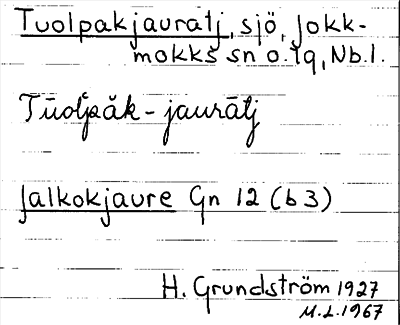 Tuolpakjauratj, sjö, Jokk-
mokks sn o. lq, Nb. l.
Tūoĺpăk-jaurātj
Jalkokjaure Gn 12 (b 3)
H. Grundström 1927
M.L. 1967